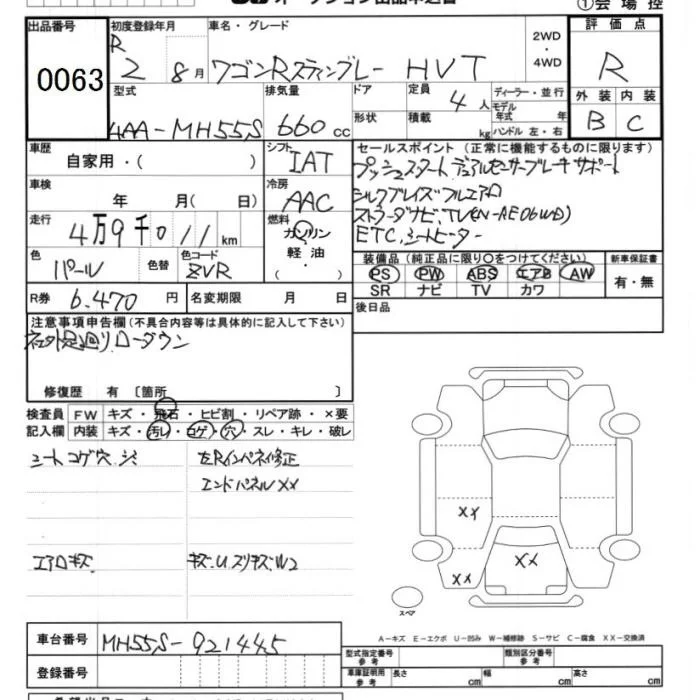 オークション出品申込書
①会場控
出品番号
0063
初度登録年月
R 2 8月
車名・グレード
ワゴンRスティングレー HVT
2WD
・
4WD
評価点
R
外装 内装
B C
型式
4AA-MH55S
排気量
660 cc
ドア
形状
定員
4人
積載
kg
ディーラー・並行
モデル
年式 年
ハンドル 左・右
車歴
自家用・( )
シフト
IAT
車検
年 月( 日)
冷房
AAC
走行
4万9千011km
燃料
ガソリン
軽油・
( )
色
パール
色替
色コード
ZVR
R券 6,470円
名変期限 月 日
セールスポイント(正常に機能するものに限ります)
プッシュスタート、デュアルセンサーブレーキサポート
シルクブレイズフルエアロ
ストラーダナビ、TV(CN-AE06WD)
ETC、シートヒーター
装備品(純正品に限り○をつけてください)
PS PW ABS エアB AW
SR ナビ TV カワ
新車保証書
有・無
後日品
注意事項申告欄(不具合内容等は具体的に記入して下さい)
社外足廻りローダウン
修復歴 有 〔箇所 〕
検査員
記入欄
FW キズ・飛石・ヒビ割・リペア跡・×要
内装 キズ・汚レ・コゲ・穴・スレ・キレ・破レ
シートコゲ穴、シミ
左Rインパネ修正
エンドパネルXX
エアロキズ
キズ・U スリキズ・W2
XX
XX
XX
スペア
A-キズ E-エクボ U-凹み W-補修跡 S-サビ C-腐食 XX-交換済
車台番号 MH55S-921445
登録番号
型式指定番号
参考
類別区分番号
参考
車庫証明用
参考
長さ cm
幅 cm
高さ cm